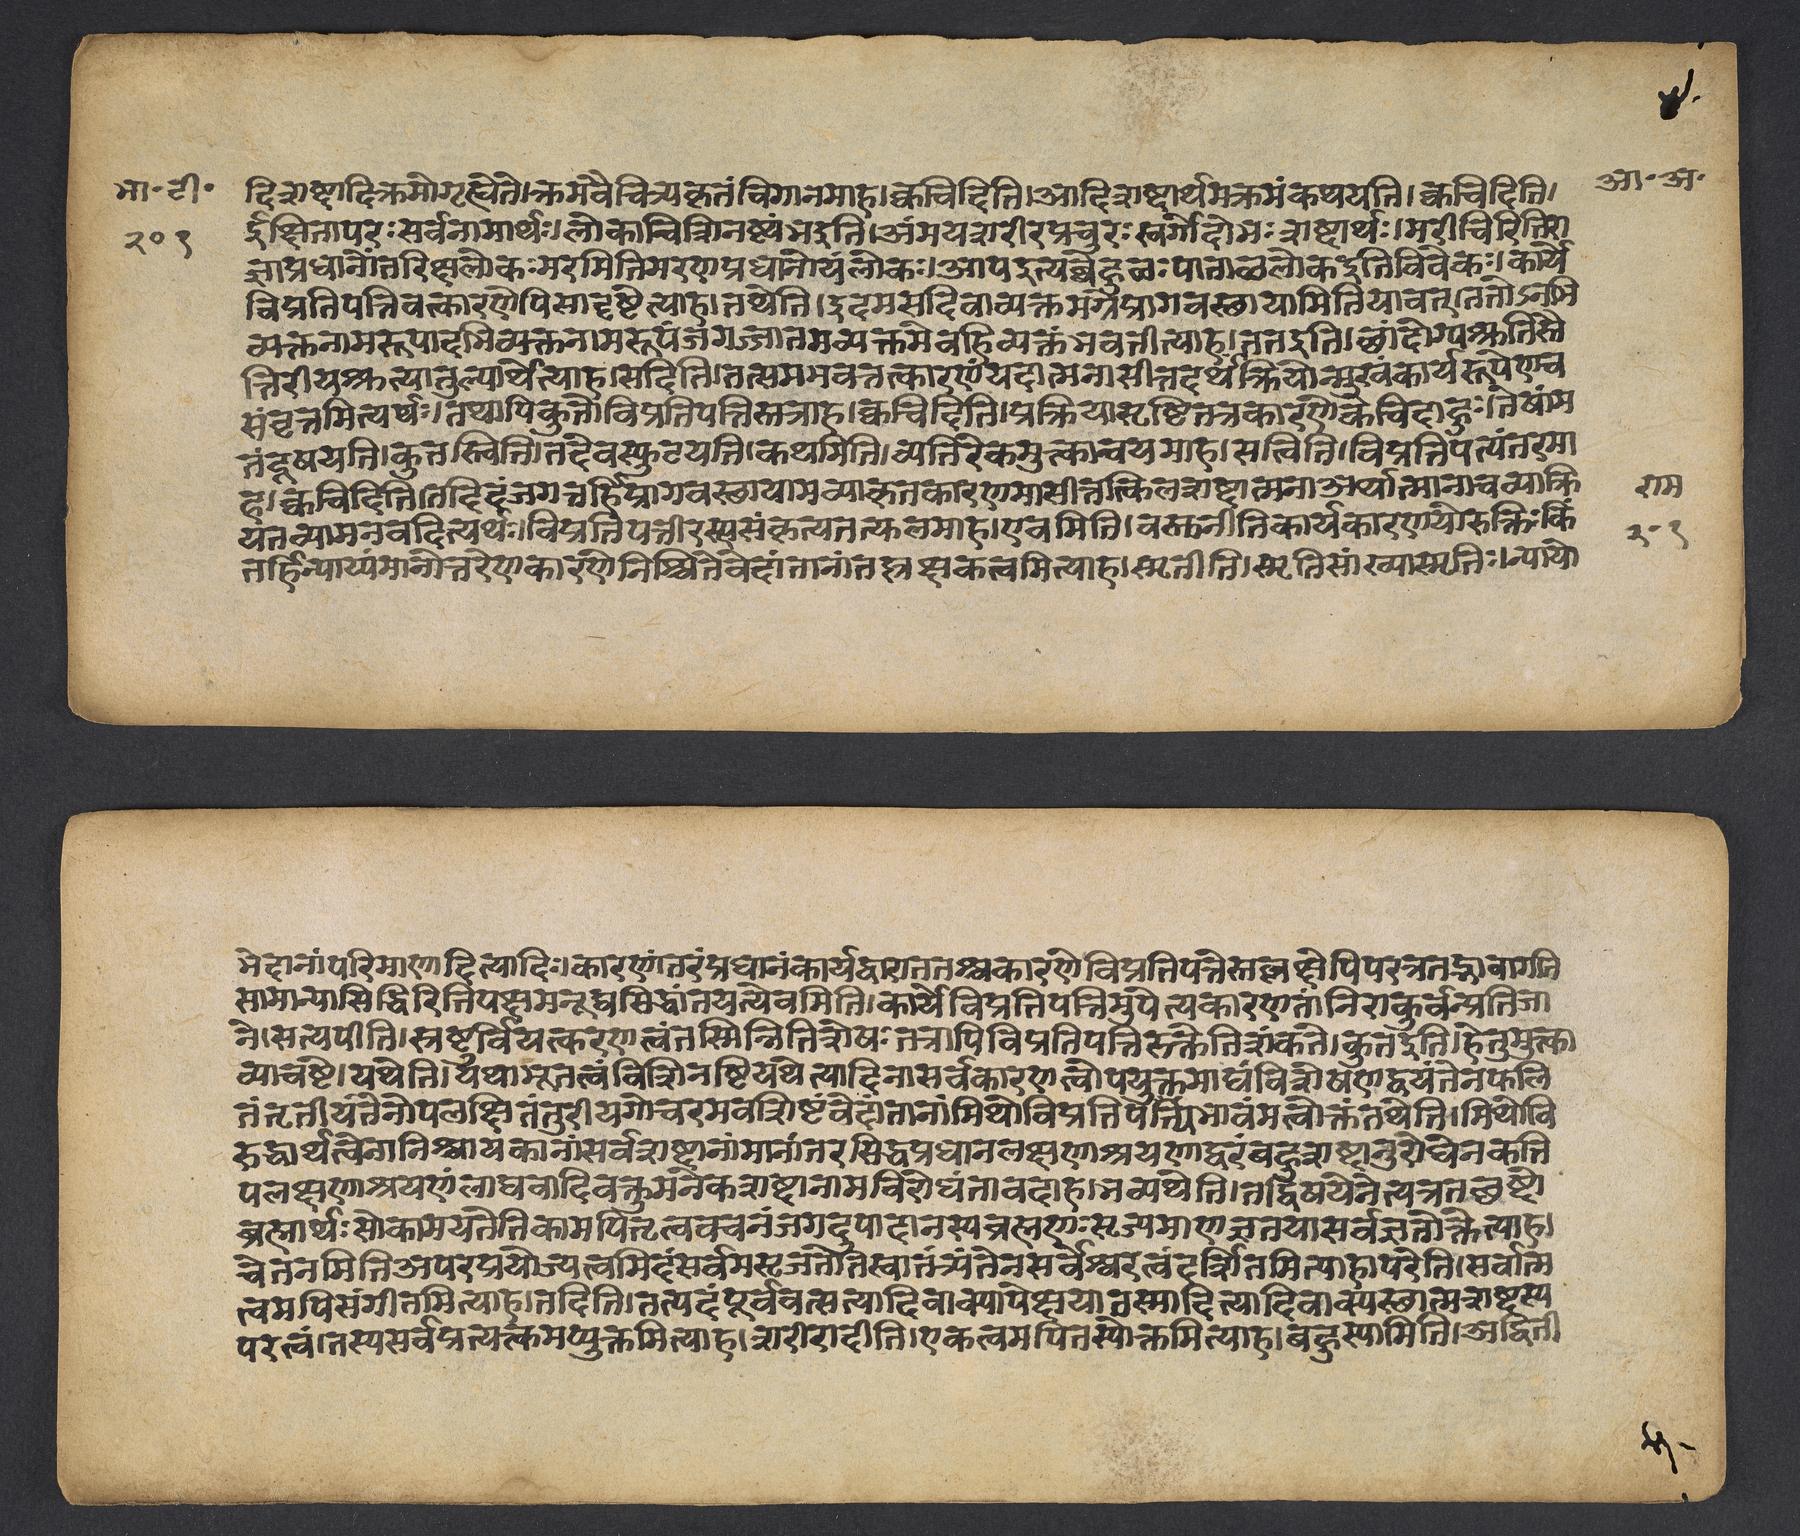 भा॰ टी॰
२०१
आ॰ अ॰
दिशब्दादिक्रमोगृह्यते।क्रमवैचित्र्यकृतंविगानमाह।क्वचिदिति।आदिशब्दार्थमक्रमंकथयति।क्वचिदिति।
र्दुक्षितापरः सर्वनामार्थः।लोकान्विशिनष्ट्यंभइति।अंमयशरीरप्रचुरः स्वर्गोदोभः शब्दार्थः।मरीचिरितिरा
ज्ञाप्रधानोंतरिक्षलोकः मरमितिमरणप्रधानोयंलोकः।आपइत्यब्बहुळः पाताळलोकइतिविवेकः।कार्ये
विप्रतिपत्तिवत्कारणेपिसादृष्टेत्याह।तथेति।इदमसदिवाव्यक्तमग्रेप्रागवस्छायामितियावत्।ततोऽनभि
व्यक्तनामरूपादभिव्यक्तनामरूपंजगज्जातमव्यक्तमेवहिव्यक्तंभवतीत्याह।ततइति।छांदोग्यश्रुतिस्तै
त्तिरीयश्रुत्यातुल्यार्थेत्याह।सदिति।तत्सममभवत्तत्कारणंयदात्मनासीत्तदर्थक्रियोन्मुखंकार्यरूपेणच
संवृत्तमित्यर्थः।तथापिकुतोविप्रतिपत्तिस्तत्राह।क्वचिदिति।प्रक्रियासृष्टिस्तत्रकारणेकेचिदाहुः।तेषांम
तंदूषयति।कुतस्त्विति।तदेवस्फुटयति।कथमिति।व्यतिरेकमुत्कान्वयमाह।सत्विति।विप्रतिपत्यंतरमा
ह।क्वचिदिति।तदिदंजगत्तर्हिप्रागवस्छायामव्याकृतकारणमासीत्तत्किलशब्दात्मनाअर्थात्मानाचव्याक्रि
यतव्यामनवदित्यर्थः।विप्रतिपत्तीरुपसंकृत्यतत्फलमाह।एवमिति।वस्तुनीतिकार्यकारणयोरुक्तिः किं
तर्हिन्याय्यंमानोत्तरेणकारणेनिश्चितेवेदांतानांतल्लक्षकत्वमित्याह।स्मृतीति।स्मृतिसांख्यास्मृतिः।न्यायो
राम
२॰१
भेदानांपरिमाणादित्यादिः।कारणांतरंप्रधानंकार्यद्वारातत्तश्चकारणेविप्रतिपत्तेस्तल्लक्षेपिपरत्रतद्भावागति
सामान्यासिद्धिरितिपक्षमनूद्यसिद्धांतयत्येवमिति।कार्येविप्रतिपत्तिमुपेत्यकारणतांनिराकुर्वन्प्रतिजा
ने।सत्यपीति।स्रष्टुर्वियत्करणत्वंतस्मिन्नितिशेषः तत्रापिविप्रतिपत्तिरुक्तेतिशंकते।कुतइति।हेतुमुत्का
व्याचष्टे।यथेति।यथाभूतत्वंविशिनष्टियथेत्यादिनासर्वकारणत्वोपयुक्तमाद्यंविशेषणद्वयंतेनफलि
तंतृतीयंतेनोपलक्षितंतुरीयगोचरमवशिष्टंवेदांतानांमिथोविप्रतिपत्त्यभावंमत्वोक्तंतथेति।मिथोवि
रुद्धार्थत्वेनानिश्चायकानांसर्वशब्दानांमानांतरसिद्धप्रधानलक्षणाश्रयणाद्वरंबहुशब्दानुरोधेनकति
पलक्षणाश्रयणंलाघवादिवक्तुमनेकशब्दानामविरोधंतावदाह।भव्यथेति।तद्विषयेनेत्यत्रतछब्दो
ब्रह्मार्थः सोकामयतेतिकामपितृत्ववचनंजगदुपादानस्यब्रह्मणः सृज्यमाणज्ञतयासर्वज्ञतोक्तेत्याह।
चेतनमितिअपरप्रयोज्यत्वमिदंसर्वमसृजतेतिस्वातंत्र्यंतेनसर्वेश्वरत्वंदर्शितमित्याहापरेति।सर्वात्म
त्वमपिसंगीतमित्याह।तदिति।तत्पदंपूर्ववत्सत्यादिवाक्यापेक्षयातस्मादित्यादिवाक्यस्छात्मशब्दस्य
परत्वं।तस्यसर्वप्रत्यत्कमप्युक्तमित्याह।शरीरादीति।एकत्वमपितस्योक्तमित्याह।बहुस्यामिति।अद्विती